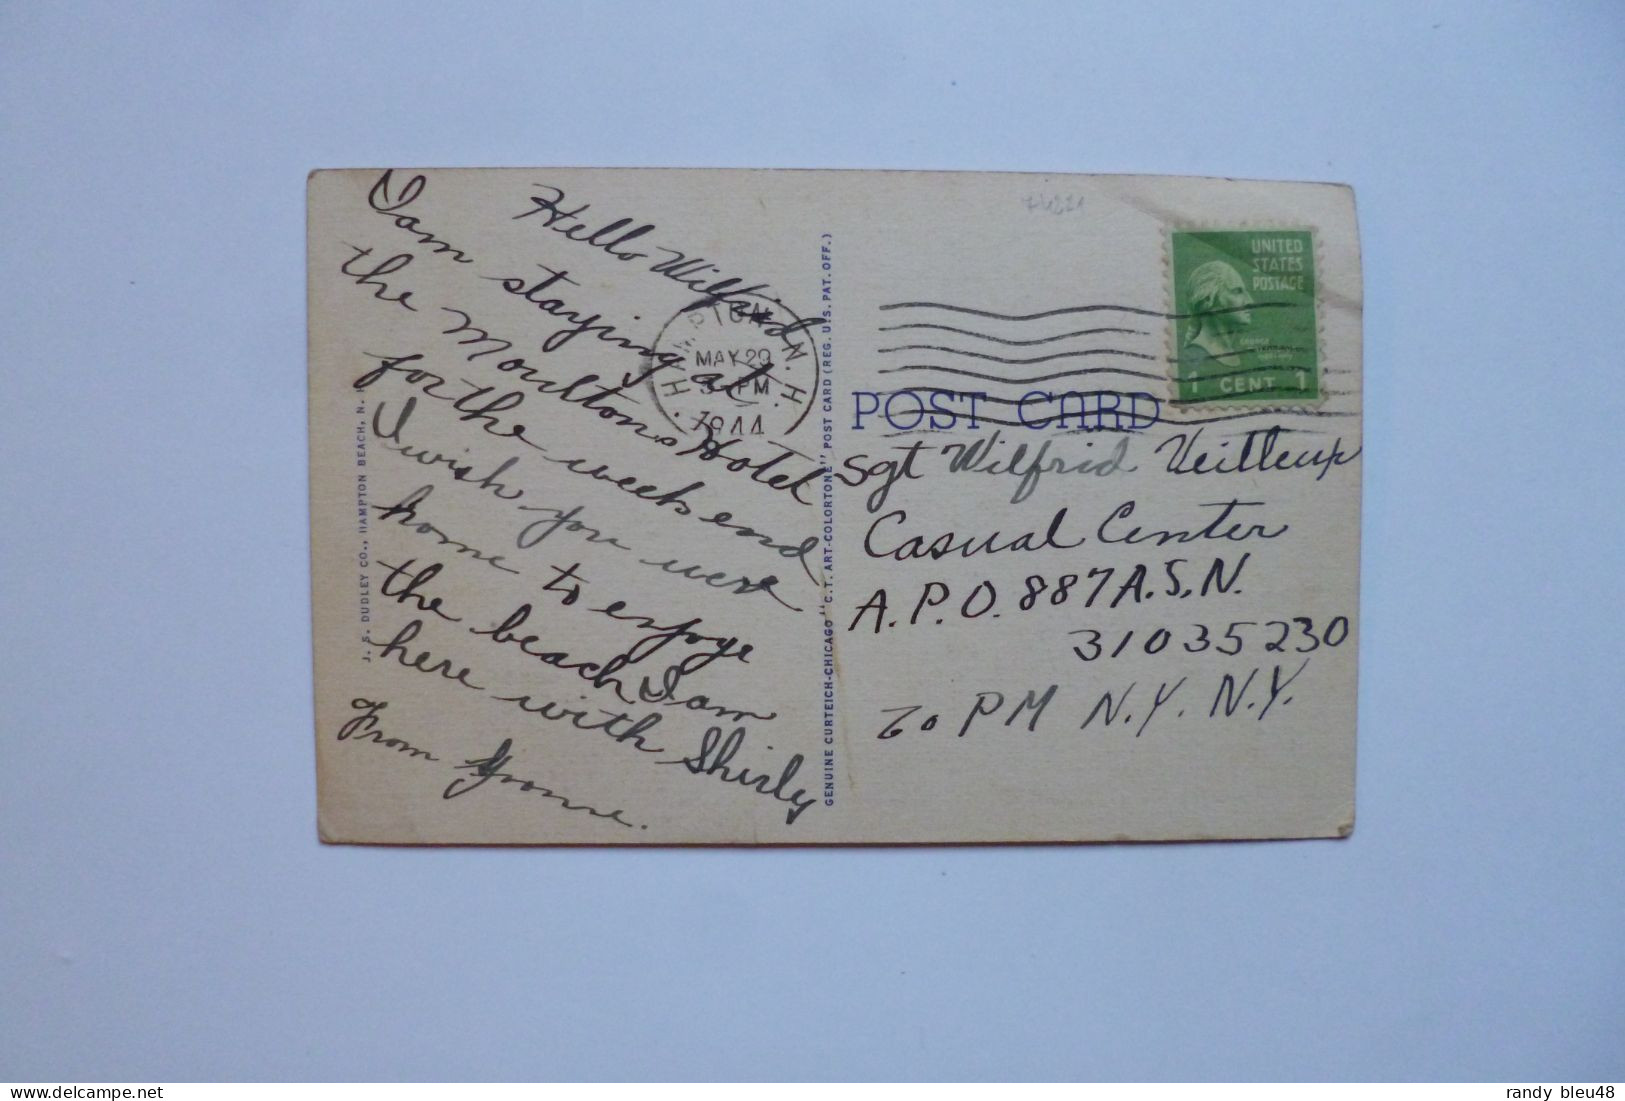 Hello Wilfrid
I am staying at
the Moultons Hotel
for the week end
I wish you were
home to enjoye
the beach I am
here with Shirly
From Yvonne.
J. S. DUDLEY CO., HAMPTON BEACH, N. H.
GENUINE CURTEICH-CHICAGO "C.T. ART-COLORTONE" POST CARD (REG. U.S. PAT. OFF.)
HAMPTON N.H.
MAY 29
PM
1944
UNITED
STATES
POSTAGE
1 CENT 1
POST CARD
Sgt Wilfrid Veilleux
Casual Center
A.P.O. 887 A.S.N.
31035230
To PM N.Y. N.Y.
randy bleu48
delcampe.net